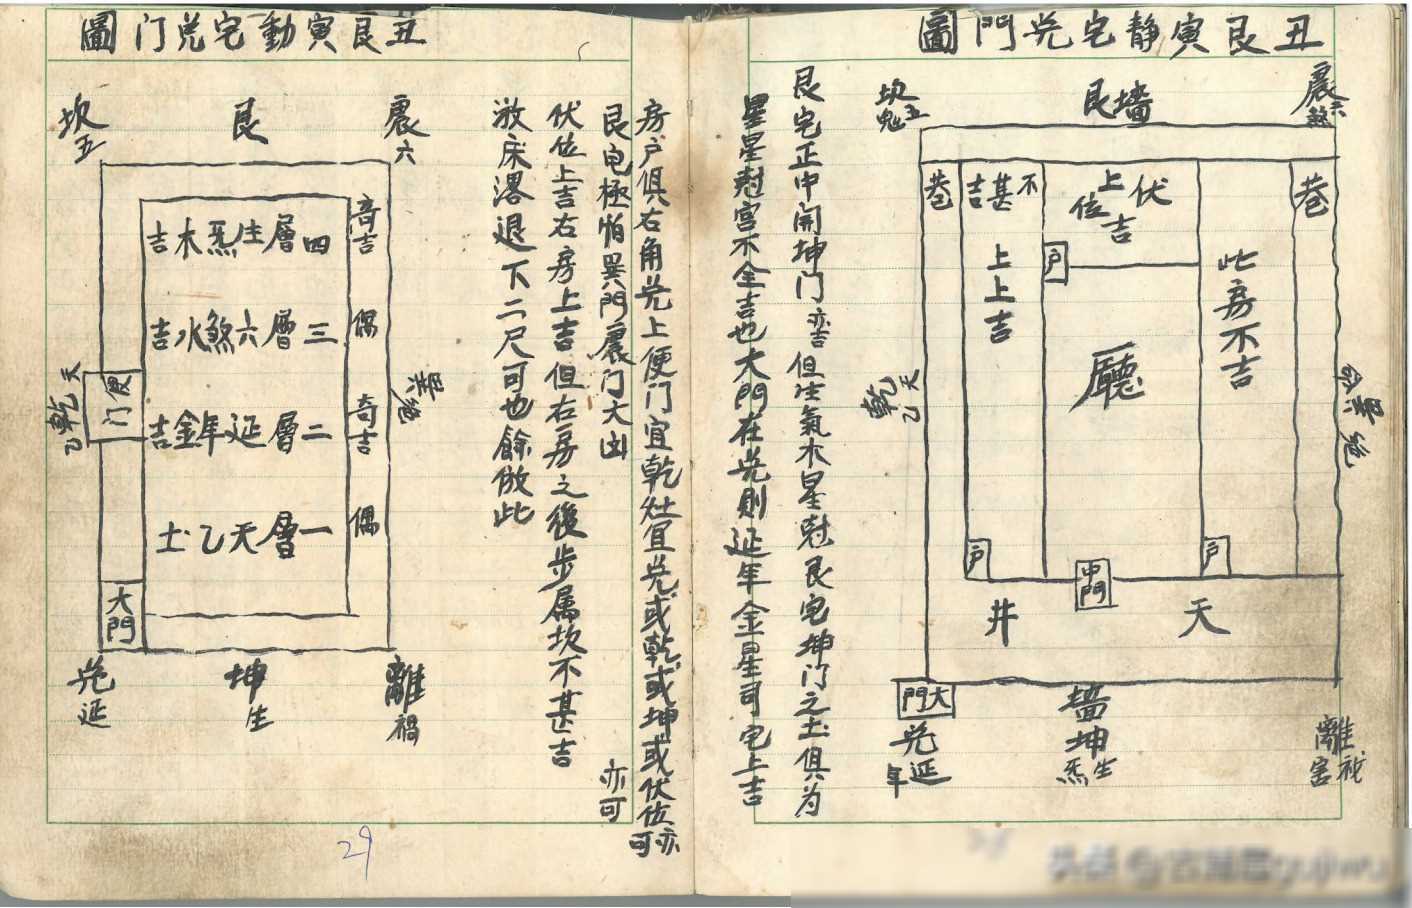 丑艮寅静宅兑門圖
震六煞
艮墻
坎五鬼
巷
不甚吉
上上吉
伏位上吉
户
此房不吉
巷
廳
乾天乙
巽絶命
户
中門
户
天井
大門
兑延年
墙坤生炁
離祸害
艮宅正中開坤门亦吉但生氣木星尅艮宅坤门之土俱为
星星尅宫不全吉也大門在兑則延年金星司宅上吉
房户俱右角兑上便门宜乾灶宜兑或乾或坤或伏位亦可
艮宅極怕巽門震门大凶
亦可
伏位上吉右房上吉但右房之後步属坎不甚吉
放床畧退下二尺可也餘倣此
丑艮寅動宅兑门圖
震六
艮
坎五
四層生炁木吉
三層六煞水吉
二層延年金吉
一層天乙土
奇吉
偶
奇吉
偶
巽絶
乾天乙
便门
大門
離禍
坤生
兑延
29